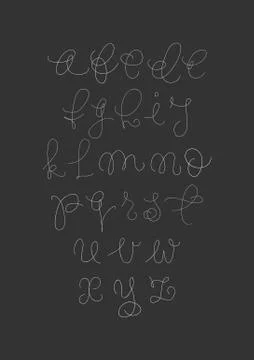 a b c d e
f g h i j
k l m n o
p q r s t
u v w
x y z